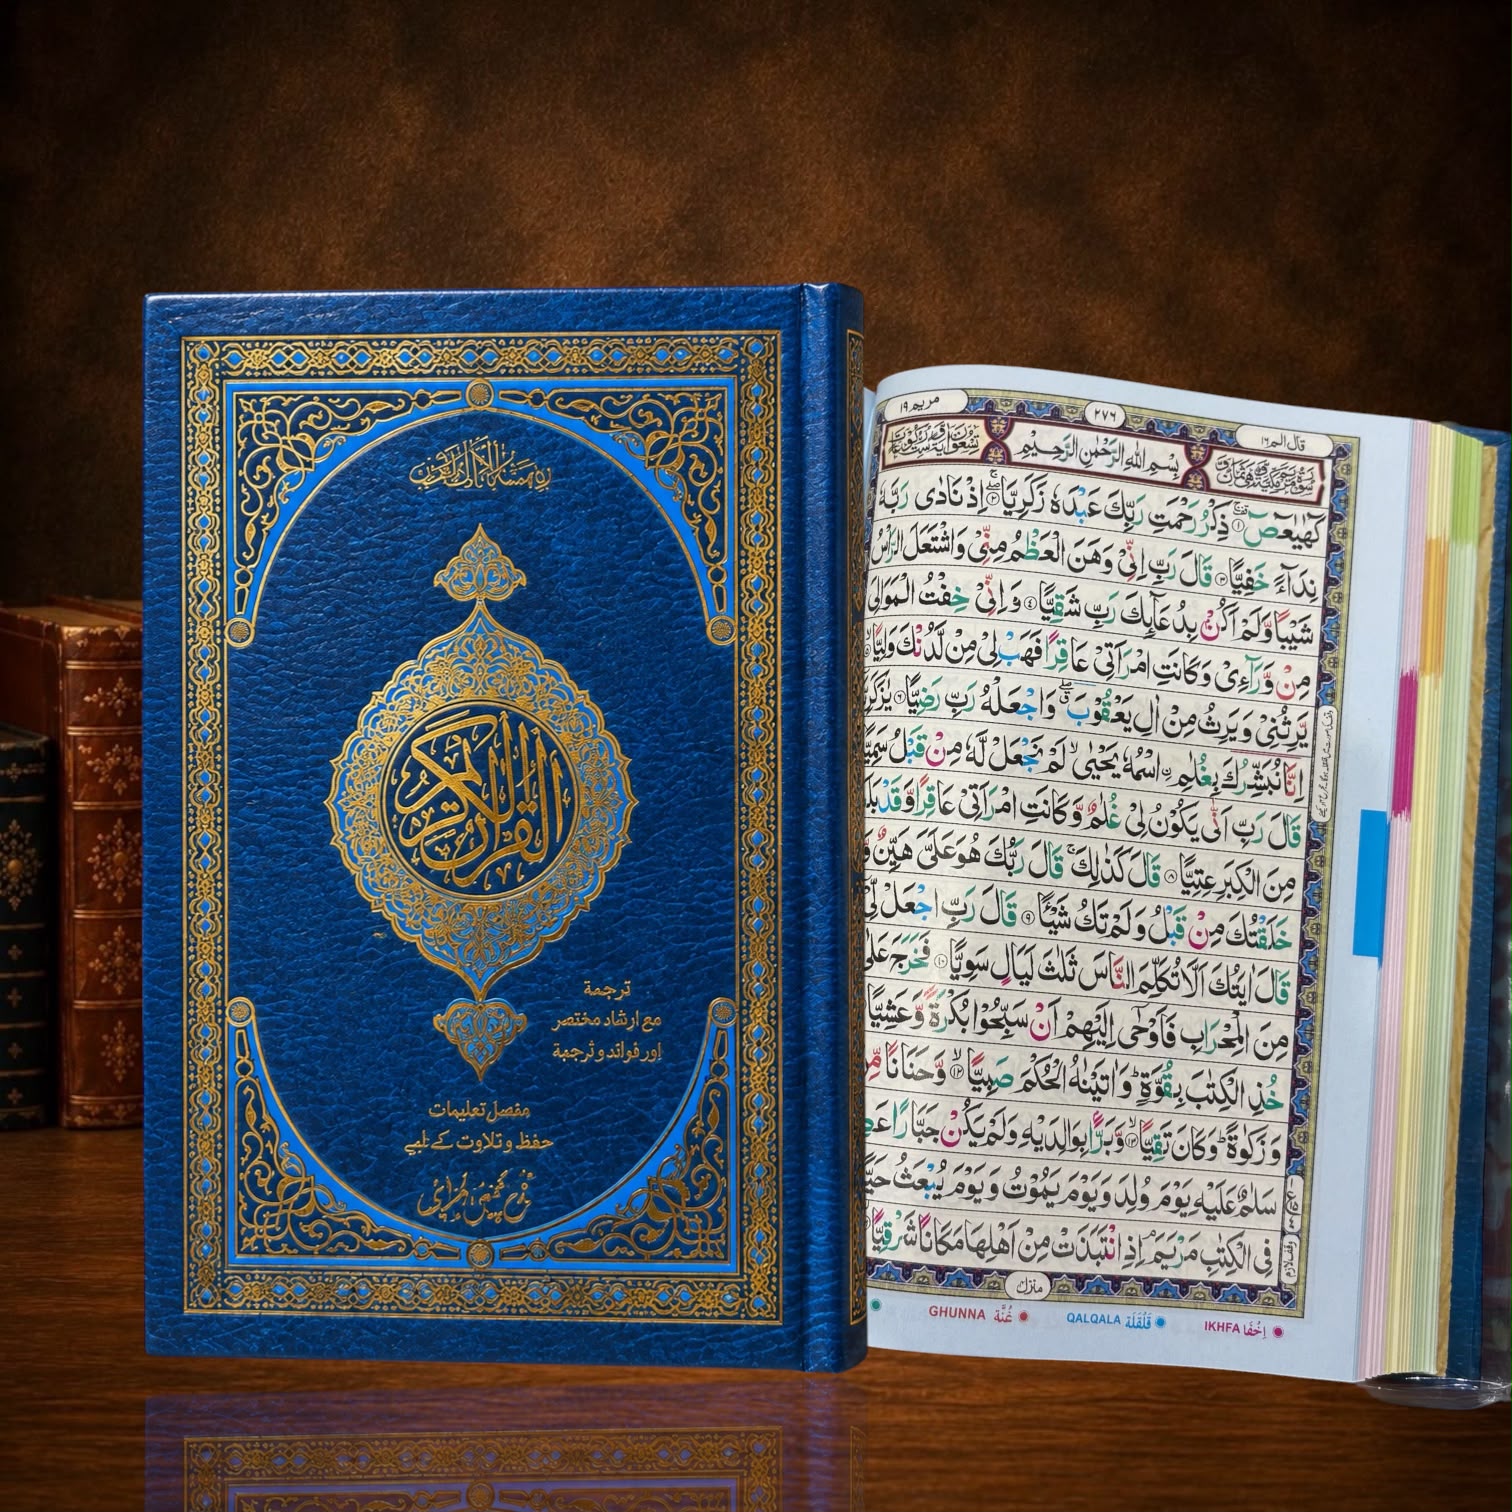 القرآن الكريم
ترجمة
مع ارشاد مختصر
اور فوائد و ترجمة
مفصل تعلیمات
حفظ و تلاوت کے لیے
مريم ١٩
٢٧٦
قال الم ١٦
بِسْمِ اللهِ الرَّحْمٰنِ الرَّحِيْمِ
كٓهٰيٰعٓصٓ ۚ ۱ ذِكْرُ رَحْمَتِ رَبِّكَ عَبْدَهٗ زَكَرِيَّا ۖ ۲ اِذْ نَادٰى رَبَّهٗ
نِدَآءً خَفِيًّا ۳ قَالَ رَبِّ اِنِّيْ وَهَنَ الْعَظْمُ مِنِّيْ وَاشْتَعَلَ الرَّاْسُ
شَيْبًا وَّلَمْ اَكُنْۢ بِدُعَآئِكَ رَبِّ شَقِيًّا ٤ وَاِنِّيْ خِفْتُ الْمَوَالِيَ
مِنْ وَّرَآءِيْ وَكَانَتِ امْرَاَتِيْ عَاقِرًا فَهَبْ لِيْ مِنْ لَّدُنْكَ وَلِيًّا
يَّرِثُنِيْ وَيَرِثُ مِنْ اٰلِ يَعْقُوْبَ ۖ وَاجْعَلْهُ رَبِّ رَضِيًّا ٦ يٰزَكَرِ
اِنَّا نُبَشِّرُكَ بِغُلٰمِ ِۨ اسْمُهٗ يَحْيٰى ۙ لَمْ نَجْعَلْ لَّهٗ مِنْ قَبْلُ سَمِيًّا
قَالَ رَبِّ اَنّٰى يَكُوْنُ لِيْ غُلٰمٌ وَّكَانَتِ امْرَاَتِيْ عَاقِرًا وَّقَدْ بَلَ
مِنَ الْكِبَرِ عِتِيًّا ۸ قَالَ كَذٰلِكَ ۚ قَالَ رَبُّكَ هُوَ عَلَيَّ هَيِّنٌ وَّ
خَلَقْتُكَ مِنْ قَبْلُ وَلَمْ تَكُ شَيْـًٔا ۹ قَالَ رَبِّ اجْعَلْ لِّيْ
قَالَ اٰيَتُكَ اَلَّا تُكَلِّمَ النَّاسَ ثَلٰثَ لَيَالٍ سَوِيًّا ۱۰ فَخَرَجَ عَلٰى
مِنَ الْمِحْرَابِ فَاَوْحٰٓى اِلَيْهِمْ اَنْ سَبِّحُوْا بُكْرَةً وَّعَشِيًّا
خُذِ الْكِتٰبَ بِقُوَّةٍ ؕ وَاٰتَيْنٰهُ الْحُكْمَ صَبِيًّا ۙ ۱۲ وَّحَنَانًا مِّنْ
وَزَكٰوةً ؕ وَكَانَ تَقِيًّا ۙ ۱۳ وَّبَرًّۢا بِوَالِدَيْهِ وَلَمْ يَكُنْ جَبَّارًا عَصِ
سَلٰمٌ عَلَيْهِ يَوْمَ وُلِدَ وَيَوْمَ يَمُوْتُ وَيَوْمَ يُبْعَثُ حَيًّا
فِي الْكِتٰبِ مَرْيَمَ ۘ اِذِ انْتَبَذَتْ مِنْ اَهْلِهَا مَكَانًا شَرْقِيًّا
وقف لازم
منزل
GHUNNA غُنَّة
QALQALA قَلْقَلَة
IKHFA اِخْفَا